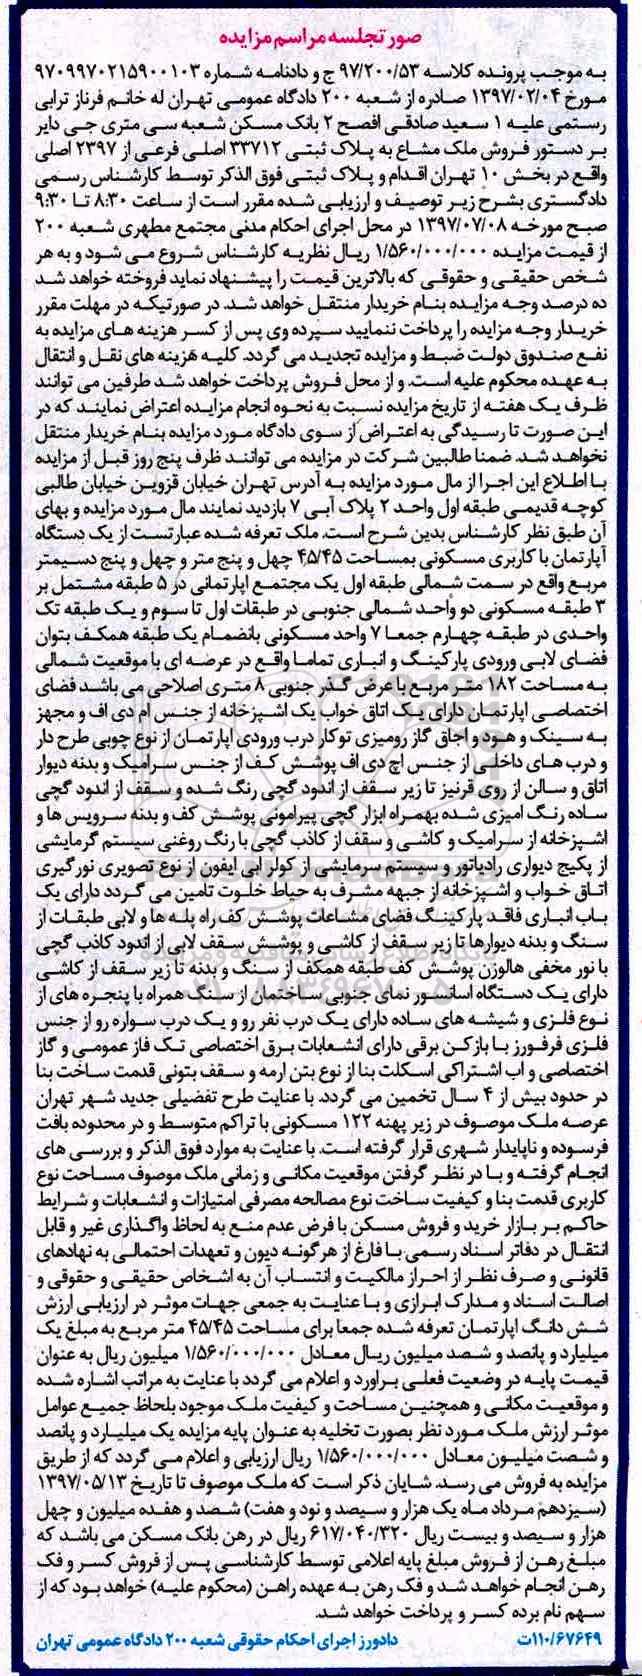 صورتجلسه مراسم مزایده
به موجب پرونده کلاسه ۹۷/۲۰۰/۵۳ ج و دادنامه شماره ۹۷۰۹۹۷۰۲۱۵۹۰۰۱۰۳
مورخ ۱۳۹۷/۰۲/۰۴ صادره از شعبه ۲۰۰ دادگاه عمومی تهران له خانم فرناز ترابی
رستمی علیه ۱ سعید صادقی افصح ۲ بانک مسکن شعبه سی متری جی دایر
بر دستور فروش ملک مشاع به پلاک ثبتی ۳۳۷۱۲ اصلی فرعی از ۲۳۹۷ اصلی
واقع در بخش ۱۰ تهران اقدام و پلاک ثبتی فوق الذکر توسط کارشناس رسمی
دادگستری بشرح زیر توصیف و ارزیابی شده مقرر است از ساعت ۸:۳۰ تا ۹:۳۰
صبح مورخه ۱۳۹۷/۰۷/۰۸ در محل اجرای احکام مدنی مجتمع مطهری شعبه ۲۰۰
از قیمت مزایده ۱/۵۶۰/۰۰۰/۰۰۰ ریال نظریه کارشناس شروع می شود و به هر
شخص حقیقی و حقوقی که بالاترین قیمت را پیشنهاد نماید فروخته خواهد شد
ده درصد وجه مزایده بنام خریدار منتقل خواهد شد. در صورتیکه در مهلت مقرر
خریدار وجه مزایده را پرداخت ننمایید سپرده وی پس از کسر هزینه های مزایده به
نفع صندوق دولت ضبط و مزایده تجدید می گردد. کلیه هزینه های نقل و انتقال
به عهده محکوم علیه است. و از محل فروش پرداخت خواهد شد طرفین می توانند
ظرف یک هفته از تاریخ مزایده نسبت به نحوه انجام مزایده اعتراض نمایند که در
این صورت تا رسیدگی به اعتراض از سوی دادگاه مورد مزایده بنام خریدار منتقل
نخواهد شد. ضمنا طالبین شرکت در مزایده می توانند ظرف پنج روز قبل از مزایده
با اطلاع این اجرا از مال مورد مزایده به آدرس تهران خیابان قزوین خیابان طالبی
کوچه قدیمی طبقه اول واحد ۲ پلاک آبی ۷ بازدید نمایند مال مورد مزایده و بهای
آن طبق نظر کارشناس بدین شرح است. ملک تعرفه شده عبارتست از یک دستگاه
آپارتمان با کاربری مسکونی بمساحت ۴۵/۴۵ چهل و پنج متر و چهل و پنج دسیمتر
مربع واقع در سمت شمالی طبقه اول یک مجتمع اپارتمانی در ۵ طبقه مشتمل بر
۳ طبقه مسکونی دو واحد شمالی جنوبی در طبقات اول تا سوم و یک طبقه تک
واحدی در طبقه چهارم جمعا ۷ واحد مسکونی بانضمام یک طبقه همکف بتوان
فضای لابی ورودی پارکینگ و انباری تماما واقع در عرضه ای با موقعیت شمالی
به مساحت ۱۸۲ متر مربع با عرض گذر جنوبی ۸ متری اصلاحی می باشد فضای
اختصاصی اپارتمان دارای یک اتاق خواب یک اشپزخانه از جنس ام دی اف و مجهز
به سینک و هود و اجاق گاز رومیزی توکار درب ورودی اپارتمان از نوع چوبی طرح دار
و درب های داخلی از جنس اچ دی اف پوشش کف از جنس سرامیک و بدنه دیوار
اتاق و سالن از روی قرنیز تا زیر سقف از اندود گچی رنگ شده و سقف از اندود گچی
ساده رنگ امیزی شده بهمراه ابزار گچی پیرامونی پوشش کف و بدنه سرویس ها و
اشپزخانه از سرامیک و کاشی و سقف از کاذب گچی با رنگ روغنی سیستم گرمایشی
از پکیج دیواری رادیاتور و سیستم سرمایشی از کولر ابی ایفون از نوع تصویری نورگیری
اتاق خواب و اشپزخانه از جبهه مشرف به حیاط خلوت تامین می گردد دارای یک
باب انباری فاقد پارکینگ فضای مشاعات پوشش کف راه پله ها و لابی طبقات از
سنگ و بدنه دیوارها تا زیر سقف از کاشی و پوشش سقف لابی از اندود کاذب گچی
با نور مخفی هالوژن پوشش کف طبقه همکف از سنگ و بدنه تا زیر سقف از کاشی
دارای یک دستگاه اسانسور نمای جنوبی ساختمان از سنگ همراه با پنجره های از
نوع فلزی و شیشه های ساده دارای یک درب نفر رو و یک درب سواره رو از جنس
فلزی فرفورز با بازکن برقی دارای انشعابات برق اختصاصی تک فاز عمومی و گاز
اختصاصی و اب اشتراکی اسکلت بنا از نوع بتن ارمه و سقف بتونی قدمت ساخت بنا
در حدود بیش از ۴ سال تخمین می گردد. با عنایت طرح تفضیلی جدید شهر تهران
عرصه ملک موصوف در زیر پهنه ۱۲۲ مسکونی با تراکم متوسط و در محدوده بافت
فرسوده و ناپایدار شهری قرار گرفته است. با عنایت به موارد فوق الذکر و بررسی های
انجام گرفته و با در نظر گرفتن موقعیت مکانی و زمانی ملک موصوف مساحت نوع
کاربری قدمت بنا و کیفیت ساخت نوع مصالحه مصرفی امتیازات و انشعابات و شرایط
حاکم بر بازار خرید و فروش مسکن با فرض عدم منع به لحاظ واگذاری غیر و قابل
انتقال در دفاتر اسناد رسمی با فارغ از هرگونه دیون و تعهدات احتمالی به نهادهای
قانونی و صرف نظر از احراز مالکیت و انتساب آن به اشخاص حقیقی و حقوقی و
اصالت اسناد و مدارک ابرازی و با عنایت به جمعی جهات موثر در ارزیابی ارزش
شش دانگ اپارتمان تعرفه شده جمعا برای مساحت ۴۵/۴۵ متر مربع به مبلغ یک
میلیارد و پانصد و شصد میلیون ریال معادل ۱/۵۶۰/۰۰۰/۰۰۰ میلیون ریال به عنوان
قیمت پایه در وضعیت فعلی براورد و اعلام می گردد با عنایت به مراتب اشاره شده
و موقعیت مکانی و همچنین مساحت و کیفیت ملک موجود بلحاظ جمیع عوامل
موثر ارزش ملک مورد نظر بصورت تخلیه به عنوان پایه مزایده یک میلیارد و پانصد
و شصت میلیون معادل ۱/۵۶۰/۰۰۰/۰۰۰ ریال ارزیابی و اعلام می گردد که از طریق
مزایده به فروش می رسد. شایان ذکر است که ملک موصوف تا تاریخ ۱۳۹۷/۰۵/۱۳
(سیزدهم مرداد ماه یک هزار و سیصد و نود و هفت) شصد و هفده میلیون و چهل
هزار و سیصد و بیست ریال ۶۱۷/۰۴۰/۳۲۰ ریال در رهن بانک مسکن می باشد که
مبلغ رهن از فروش مبلغ پایه اعلامی توسط کارشناسی پس از فروش کسر و فک
رهن انجام خواهد شد و فک رهن به عهده راهن (محکوم علیه) خواهد بود که از
سهم نام برده کسر و پرداخت خواهد شد.
۱۱۰/۶۷۶۴۹ت دادورز اجرای احکام حقوقی شعبه ۲۰۰ دادگاه عمومی تهران